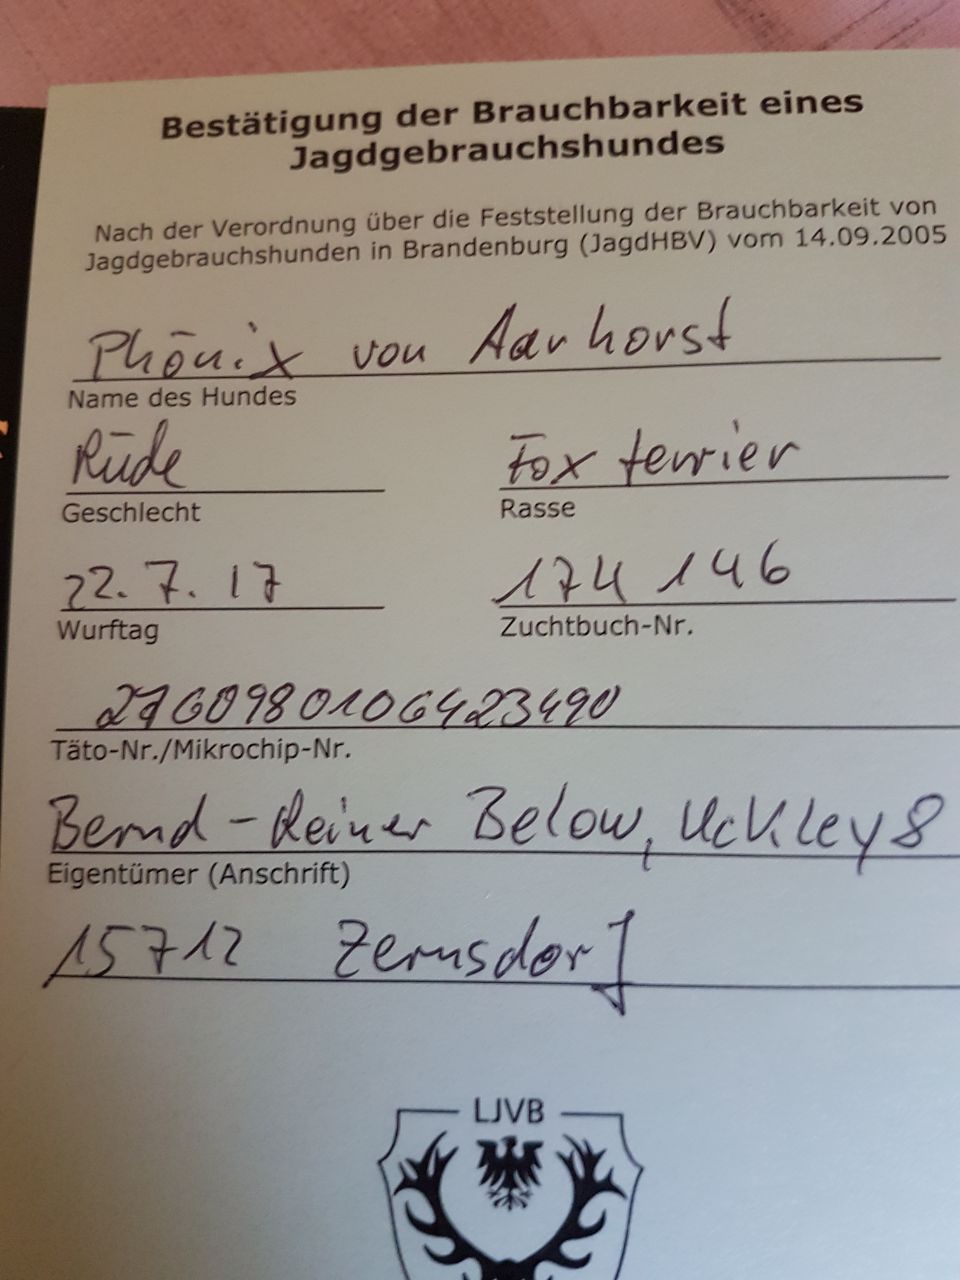 Bestätigung der Brauchbarkeit eines
Jagdgebrauchshundes
Nach der Verordnung über die Feststellung der Brauchbarkeit von
Jagdgebrauchshunden in Brandenburg (JagdHBV) vom 14.09.2005
Phönix von Aarhorst
Name des Hundes
Rüde Foxterrier
Geschlecht Rasse
22.7.17 174146
Wurftag Zuchtbuch-Nr.
276098010642​3490
Täto-Nr./Mikrochip-Nr.
Bernd-Reiner Below, Uckley 8
Eigentümer (Anschrift)
15712 Zernsdorf
LJVB